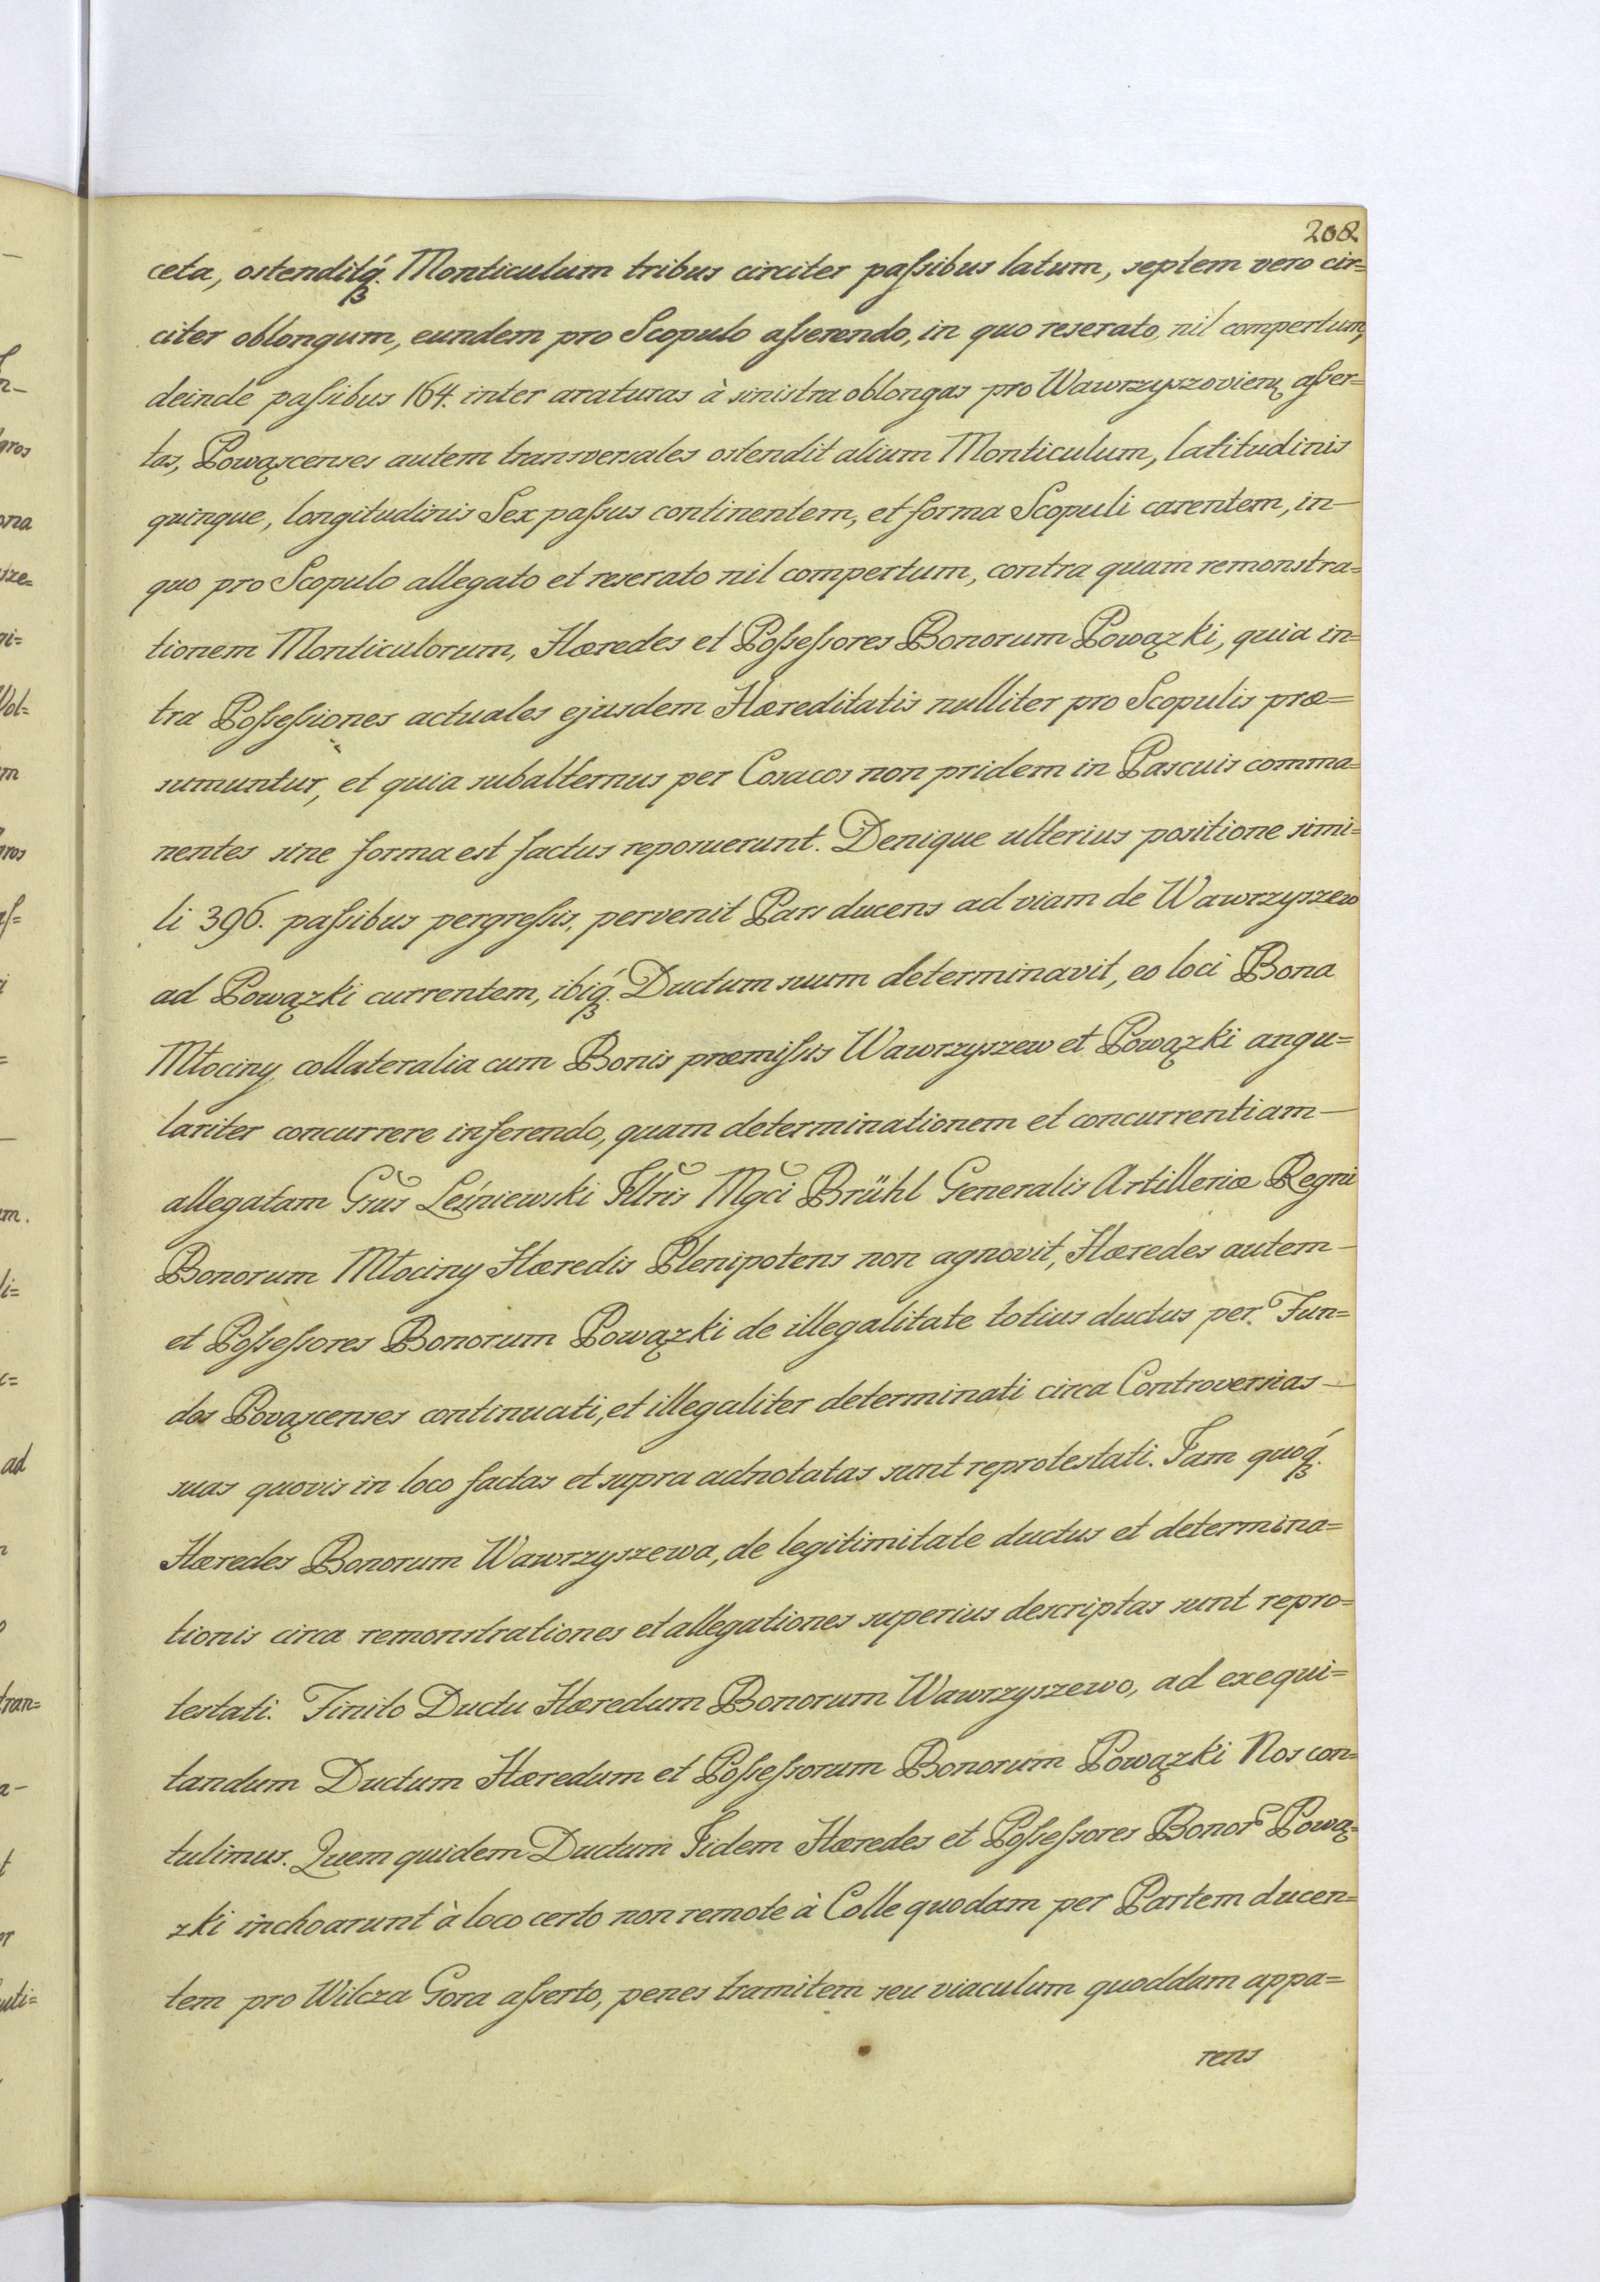 208
ceta, ostenditq́. Monticulum tribus circiter paſsibus latum, septem vero cir=
citer oblongum, eundem pro Scopulo aſserendo, in quo reserato, nil compertum,
deindè paſsibus 164. inter araturas à sinistra oblongas pro Wawrzyszovien aſser=
tas, Powązcenses autem transversales ostendit alium Monticulum, latitudinis
quinque, longitudinis Sex paſsus continentem, et forma Scopuli carentem, in—
quo pro Scopulo allegato et reserato nil compertum, contra quam remonstra=
tionem Monticulorum, Hæredes et Poſseſsores Bonorum Powązki, quia in=
tra Poſseſsiones actuales ejusdem Hæreditatis nulliter pro Scopulis præ=
sumuntur, et quia subalternus per Cosacos non pridem in Pascuis comma=
nentes sine forma est factus reposuerunt. Denique ulterius positione simi=
li 396. paſsibus pergreſsis, pervenit Pars ducens ad viam de Wawrzyszew
ad Powązki currentem, ibiq́. Ductum suum determinavit, eo loci Bona
Młociny collateralia cum Bonis præmiſsis Wawrzyszew et Powązki angu=
lariter concurrere inferendo, quam determinationem et concurrentiam—
allegatam Gsus Leśniewski Illris Mgci Brühl Generalis Artilleriæ Regni
Bonorum Młociny Hæredis Plenipotens non agnovit, Hæredes autem—
et Poſseſsores Bonorum Powązki de illegalitate totius ductus per Fun=
dos Povązcenses continuati, et illegaliter determinati circa Controversias—
suas quovis in loco factas et supra adnotatas sunt reprotestati. Jam quoq́.
Hæredes Bonorum Wawrzyszewa, de legitimitate ductus et determina=
tionis circa remonstrationes et allegationes superius descriptas sunt repro=
testati. Finito Ductu Hæredum Bonorum Wawrzyszewo, ad exequi=
tandum Ductum Hæredum et Poſseſsorum Bonorum Powązki Nos con=
tulimus. Quem quidem Ductum Iidem Hæredes et Poſseſsores Bonor Pową=
zki inchoarunt à loco certo non remote à Colle quodam per Partem ducen=
tem pro Wilcza Gora aſserto, penes tramitem seu viaculum quoddam appa=
rens